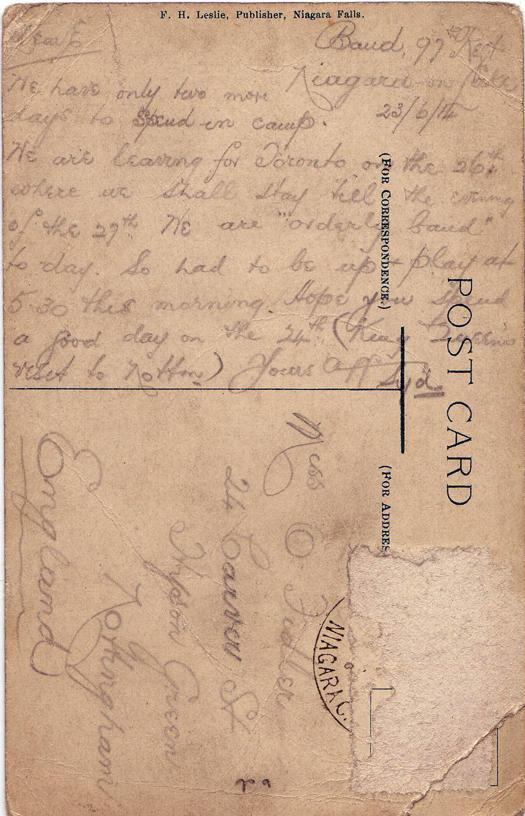 F. H. Leslie, Publisher, Niagara Falls.
Dear E
Band, 97th Regt
Niagara-on-Lake
23/6/14
We have only two more
days to spend in camp.
We are leaving for Toronto on the 26th
where we shall stay till the evening
of the 27th. We are "orderly band"
to day. So had to be up & play at
5-30 this morning. Hope you spend
a good day on the 24th (King & Queen's
visit to Nottm) Yours Aff Syd
(FOR CORRESPONDENCE.)
POST CARD
(FOR ADDRES
Miss O Fidler
24 Carver St
Hyson Green
Nottingham
England
NIAGARA C.